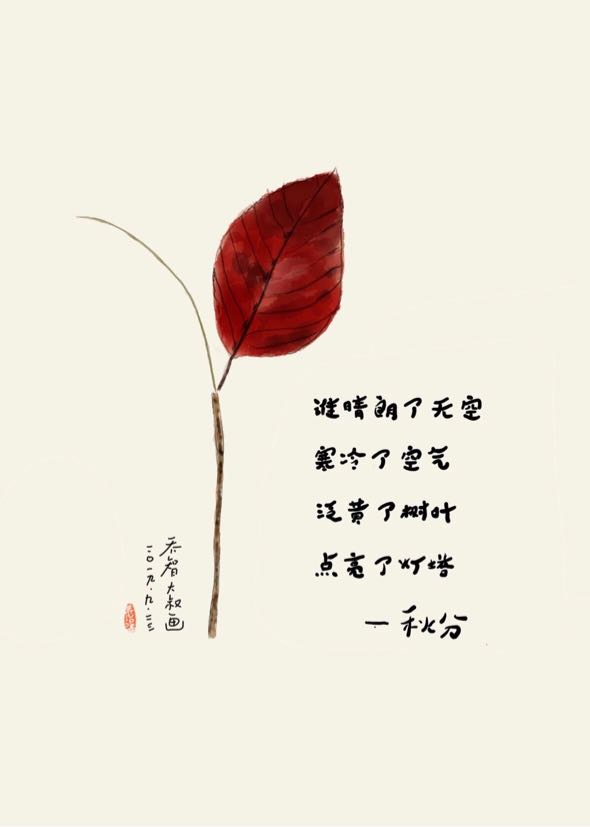 谁晴朗了天空
寒冷了空气
泛黄了树叶
点亮了灯塔
一秋分
乔智大叔画
二〇一九.九.二三